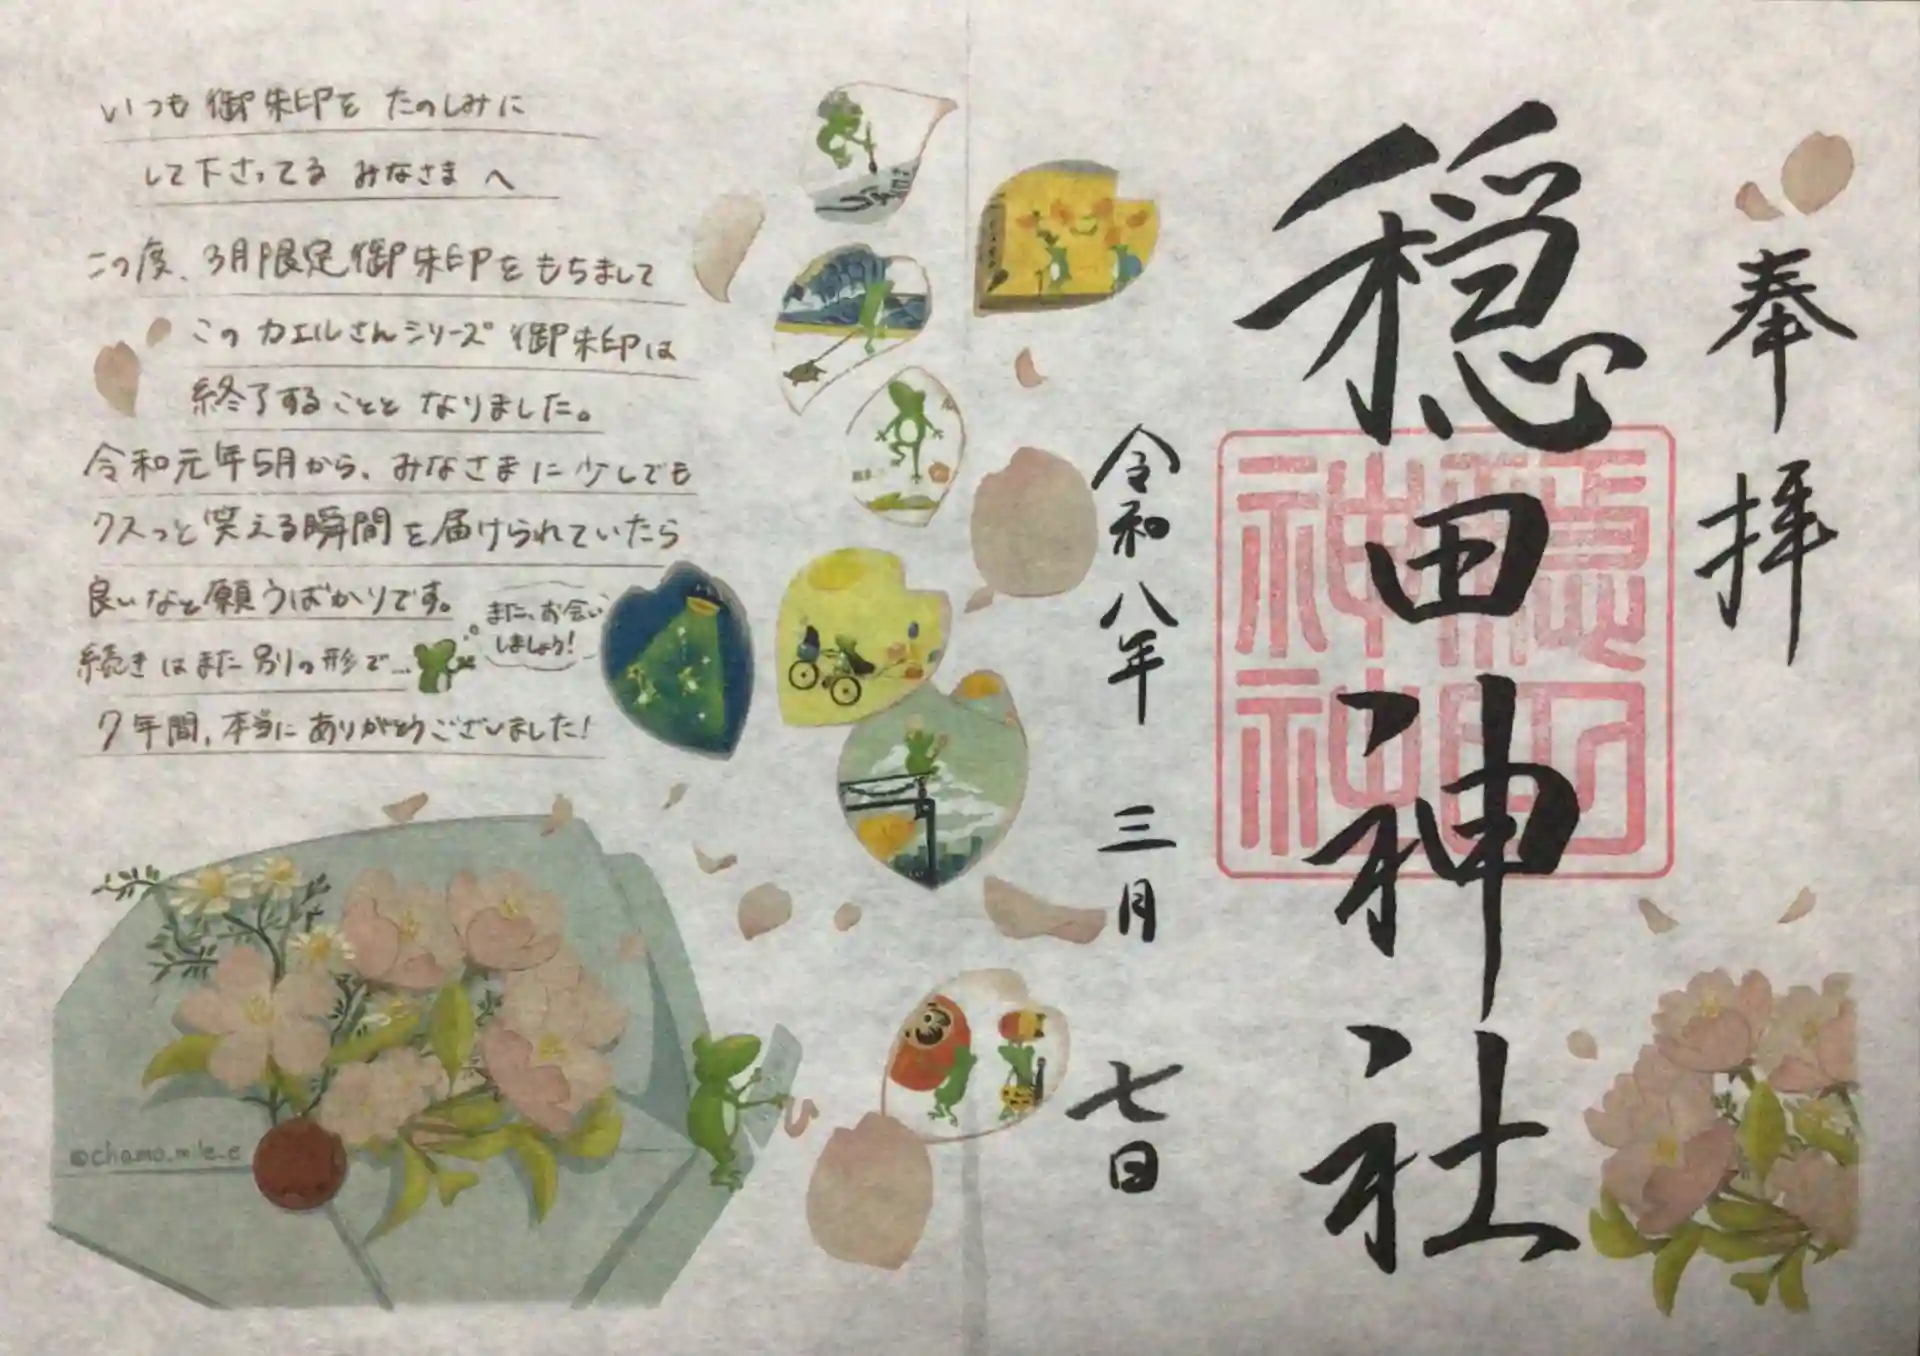 奉拝
穏田神社
穏田神社
令和八年 三月 七日
いつも御朱印をたのしみに
して下さってる みなさまへ
この度、3月限定御朱印をもちまして
このカエルさんシリーズ御朱印は
終了することと なりました。
令和元年5月から、みなさまに少しでも
クスっと笑える瞬間を届けられていたら
良いなと願うばかりです。
続きはまた別の形で…
また、お会い
しましょう!
7年間、本当にありがとうございました!
@chamo_mile_e